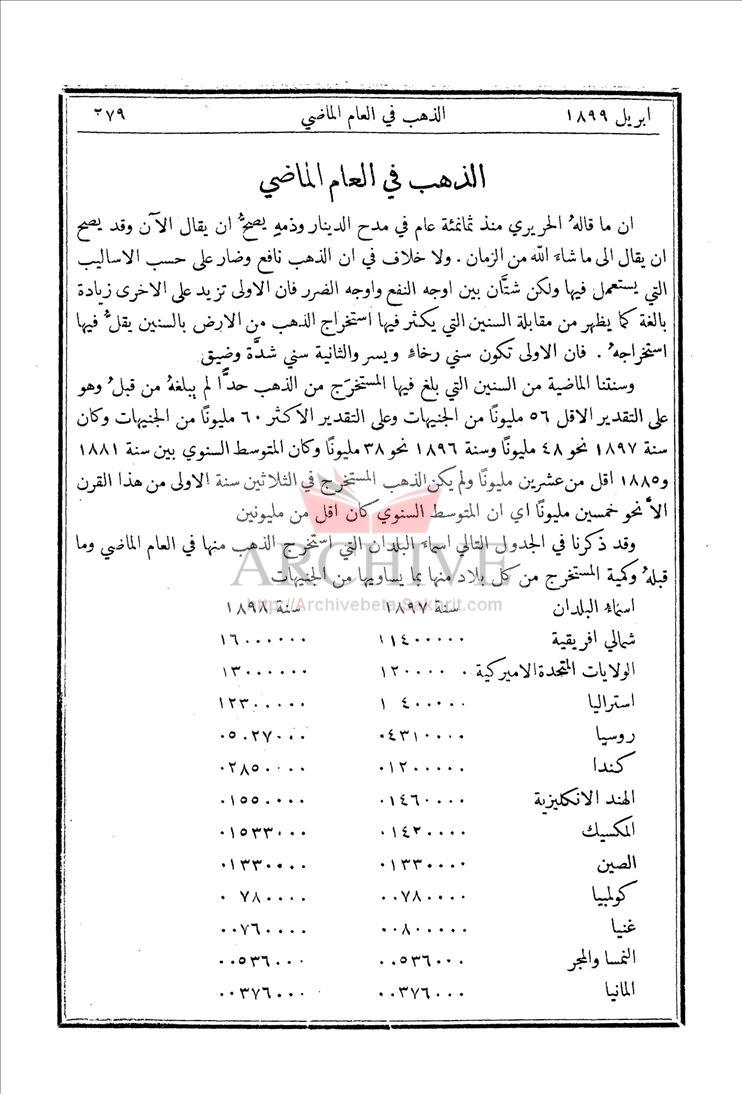 ابريل ١٨٩٩ الذهب في العام الماضي ٢٧٩
الذهب في العام الماضي
ان ما قالهُ الحريري منذ ثمانمئة عام في مدح الدينار وذمهِ يصحُّ ان يقال الآن وقد يصح
ان يقال الى ما شاء الله من الزمان . ولا خلاف في ان الذهب نافع وضار على حسب الاساليب
التي يستعمل فيها ولكن شتَّان بين اوجه النفع واوجه الضرر فان الاولى تزيد على الاخرى زيادة
بالغة كما يظهر من مقابلة السنين التي يكثر فيها استخراج الذهب من الارض بالسنين يقلُّ فيها
استخراجهُ . فان الاولى تكون سني رخاءٍ ويسر والثانية سني شدَّة وضيق
وسنتنا الماضية من السنين التي بلغ فيها المستخرَج من الذهب حدًّا لم يبلغهُ من قبلُ وهو
على التقدير الاقل ٥٦ مليونًا من الجنيهات وعلى التقدير الاكثر ٦٠ مليونًا من الجنيهات وكان
سنة ١٨٩٧ نحو ٤٨ مليونًا وسنة ١٨٩٦ نحو ٣٨ مليونًا وكان المتوسط السنوي بين سنة ١٨٨١
و١٨٨٥ اقل من عشرين مليونًا ولم يكن الذهب المستخرج في الثلاثين سنة الاولى من هذا القرن
الاَّ نحو خمسين مليونًا اي ان المتوسط السنوي كان اقل من مليونين
وقد ذكرنا في الجدول التالي اسماء البلدان التي استخرج الذهب منها في العام الماضي وما
قبلهُ وكمية المستخرج من كل بلاد منها بما يساويها من الجنيهات
ARCHIVE
http://Archivebeta.Sakhrit.com
اسماء البلدان سنة ١٨٩٧ سنة ١٨٩٨
شمالي افريقية ١١٤٠٠٠٠٠ ١٦٠٠٠٠٠٠
الولايات المتحدة الاميركية ١٢٠٠٠٠٠٠ ١٣٠٠٠٠٠٠
استراليا ١ ٤٠٠٠٠٠ ١٢٣٠٠٠٠٠
روسيا ٠٤٣١٠٠٠٠ ٠٥٠٢٧٠٠٠
كندا ٠١٢٠٠٠٠٠ ٠٢٨٥٠٠٠٠
الهند الانكليزية ٠١٤٦٠٠٠٠ ٠١٥٥٠٠٠٠
المكسيك ٠١٤٢٠٠٠٠ ٠١٥٣٣٠٠٠
الصين ٠١٣٣٠٠٠٠ ٠١٣٣٠٠٠٠
كولمبيا ٠٠٧٨٠٠٠٠ ٠ ٧٨٠٠٠٠
غنيا ٠٠٨٠٠٠٠٠ ٠٠٧٦٠٠٠٠
النمسا والمجر ٠٠٥٣٦٠٠٠ ٠٠٥٣٦٠٠٠
المانيا ٠٠٣٧٦٠٠٠ ٠٠٣٧٦٠٠٠